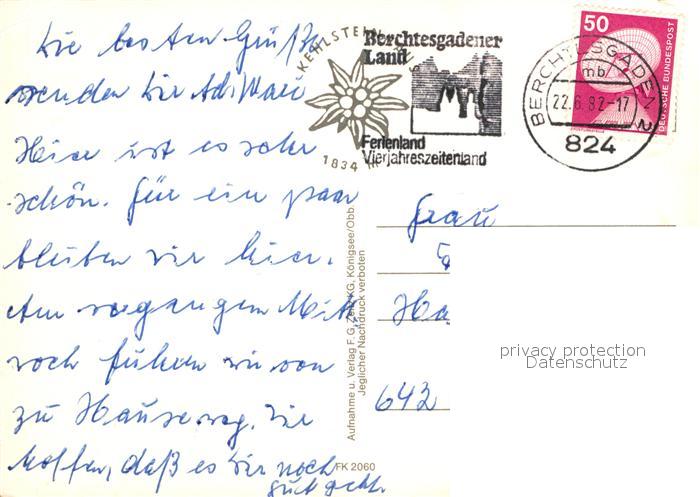 Die besten Grüße
senden Dir
Hier ist es sehr
schön. Für ein paar
bleiben wir hier.
Am vergangen Mitt
woch fuhren wir von
zu Hause weg. Wir
hoffen, daß es Dir noch
gut geht.
KEHLSTEINHAUS
1834 m
Berchtesgadener
Land
Ferienland
Vierjahreszeitenland
BERCHTESGADEN 2
mb
22.6.82-17
824
50
DEUTSCHE BUNDESPOST
Aufnahme u. Verlag F. G. Zeitz KG. Königsee/Obb.
Jeglicher Nachdruck verboten
FK 2060
Frau
Ha
642
privacy protection
Datenschutz